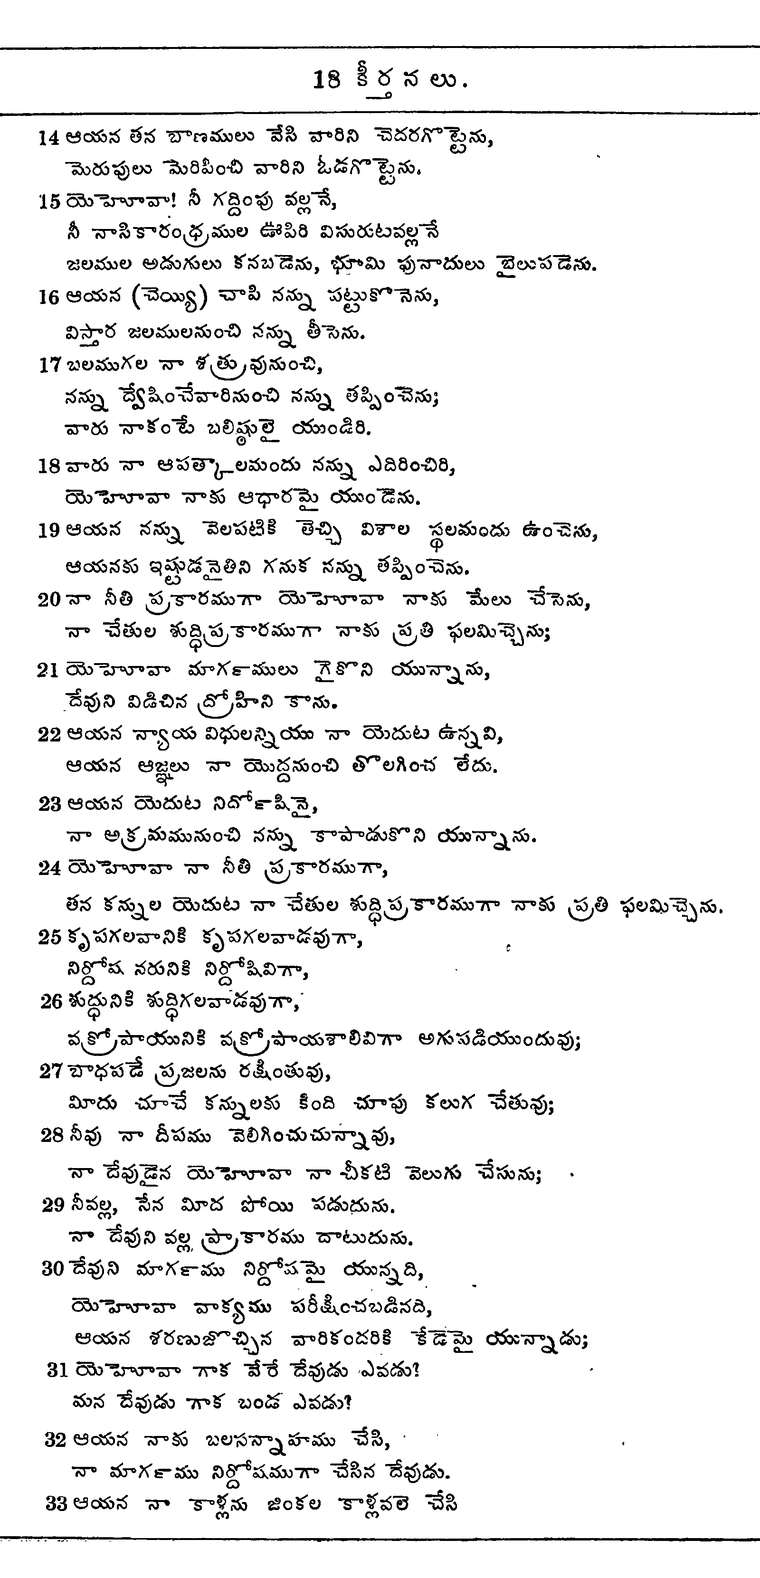 18 కీర్తనలు.
14 ఆయన తన బాణములు వేసి వారిని చెదరగొట్టెను,
మెరుపులు మెరిపించి వారిని ఓడగొట్టెను.
15 యెహెూవా! నీ గద్దింపు వల్లనే,
నీ నాసికారంధ్రముల ఊపిరి విసురుటవల్లనే
జలముల అడుగులు కనబడెను, భూమి పునాదులు బైలుపడెను.
16 ఆయన (చెయ్యి) చాపి నన్ను పట్టుకొనెను,
విస్తార జలములనుంచి నన్ను తీసెను.
17 బలముగల నా శత్రువునుంచి,
నన్ను ద్వేషించేవారినుంచి నన్ను తప్పించెను;
వారు నాకంటే బలిష్ఠులై యుండిరి.
18 వారు నా ఆపత్కాలమందు నన్ను ఎదిరించిరి,
యెహెూవా నాకు ఆధారమై యుండెను.
19 ఆయన నన్ను వెలపటికి తెచ్చి విశాల స్థలమందు ఉంచెను,
ఆయనకు ఇష్టుడనైతిని గనుక నన్ను తప్పించెను.
20 నా నీతి ప్రకారముగా యెహెూవా నాకు మేలు చేసెను,
నా చేతుల శుద్ధిప్రకారముగా నాకు ప్రతి ఫలమిచ్చెను;
21 యెహెూవా మాగ౯ములు గైకొని యున్నాను,
దేవుని విడిచిన ద్రోహిని కాను.
22 ఆయన న్యాయ విధులన్నియు నా యెదుట ఉన్నవి,
ఆయన ఆజ్ఞలు నా యొద్దనుంచి తొలగించ లేదు.
23 ఆయన యెదుట నిదో౯షినై,
నా అక్రమమునుంచి నన్ను కాపాడుకొని యున్నాను.
24 యెహెూవా నా నీతి ప్రకారముగా,
తన కన్నుల యెదుట నా చేతుల శుద్ధిప్రకారముగా నాకు ప్రతి ఫలమిచ్చెను.
25 కృపగలవానికి కృపగలవాడవుగా,
నిర్దోష నరునికి నిర్దోషివిగా,
26 శుద్ధునికి శుద్ధిగలవాడవుగా,
వక్రోపాయునికి వక్రోపాయశాలివిగా అగుపడియుందువు;
27 బాధపడే ప్రజలను రక్షింతువు,
మీదు చూచే కన్నులకు కింది చూపు కలుగ చేతువు;
28 నీవు నా దీపము వెలిగించుచున్నావు,
నా దేవుడైన యెహెూవా నా చీకటి వెలుగు చేసును;
29 నీవల్ల, సేన మీద పోయి పడుదును.
నా దేవుని వల్ల ప్రాకారము దాటుదును.
30 దేవుని మాగ౯ము నిర్దోషమై యున్నది,
యెహెూవా వాక్యము పరీక్షించబడినది,
ఆయన శరణుజొచ్చిన వారికందరికి కేడెమై యున్నాడు;
31 యెహెూవా గాక వేరే దేవుడు ఎవడు?
మన దేవుడు గాక బండ ఎవడు?
32 ఆయన నాకు బలసన్నాహము చేసి,
నా మాగ౯ము నిర్దోషముగా చేసిన దేవుడు.
33 ఆయన నా కాళ్లను జింకల కాళ్లవలె చేసి